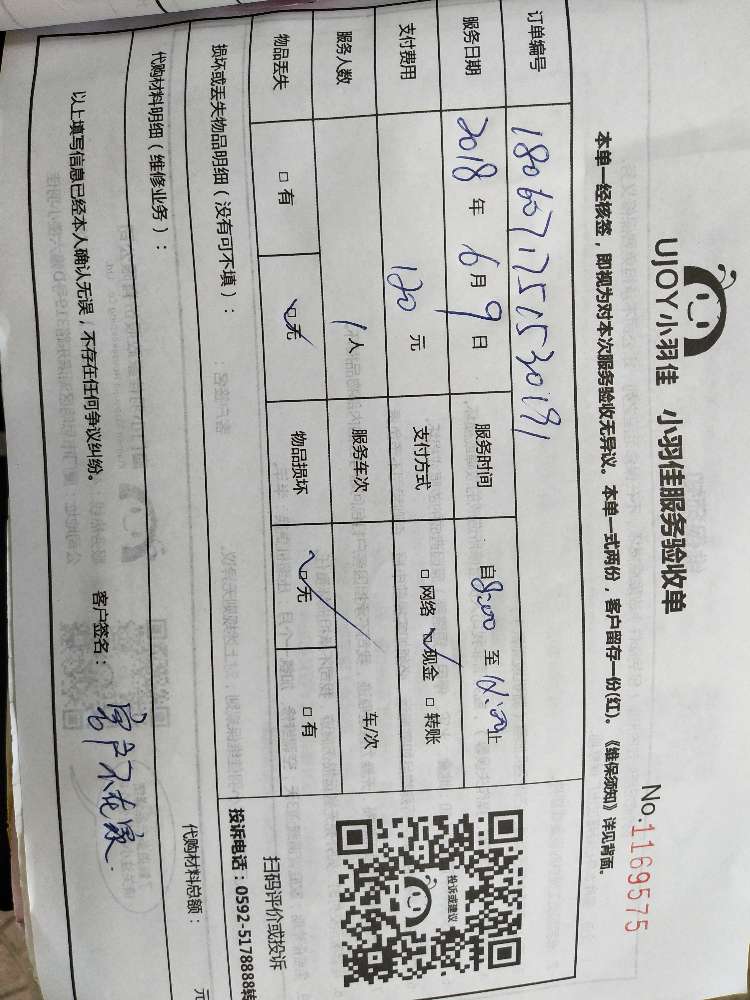 UJOY小羽佳 小羽佳服务验收单
No.1169575
本单一经核签，即视为对本次服务验收无异议。本单一式两份，客户留存一份(红)。《维保须知》详见背面。
订单编号 1806071751530191
服务日期 2018年6月9日 服务时间 自8:00至12:00止
支付费用 120元 支付方式 □网络 ☑现金 □转账
服务人数 1人 服务车次 车/次
物品丢失 □有 ☑无 物品损坏 ☑无 □有
投诉或建议
扫码评价或投诉
投诉电话：0592-5178888转
损坏或丢失物品明细（没有可不填）：
代购材料明细（维修业务）：
代购材料总额： 元
以上填写信息已经本人确认无误，不存在任何争议纠纷。
客户签名：客户不在家.